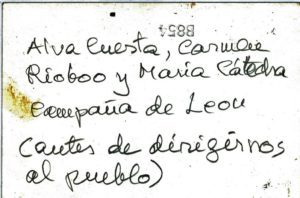 B854
Alva Cuesta, Carmen
Rioboo y María Cátedra
Campaña de Leon
(antes de dirigirnos
al pueblo)